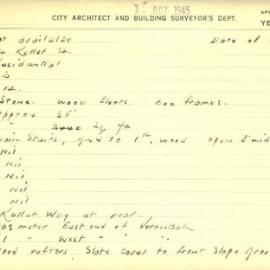 CITY ARCHITECT AND BUILDING SURVEYOR'S DEPT.
OCT 1945
AP
YE
ot available Date of
Kellet St.
esidential
Stone. wood floors. box frames.
pprox
sq
ain Stairs, gnd to 1st, wood open
Nil
Nil
Nil
Nil
Nil
Kellet Way at rear.
as meter East end of Verandah
" West "
ood rafters, Slate cover to front slope